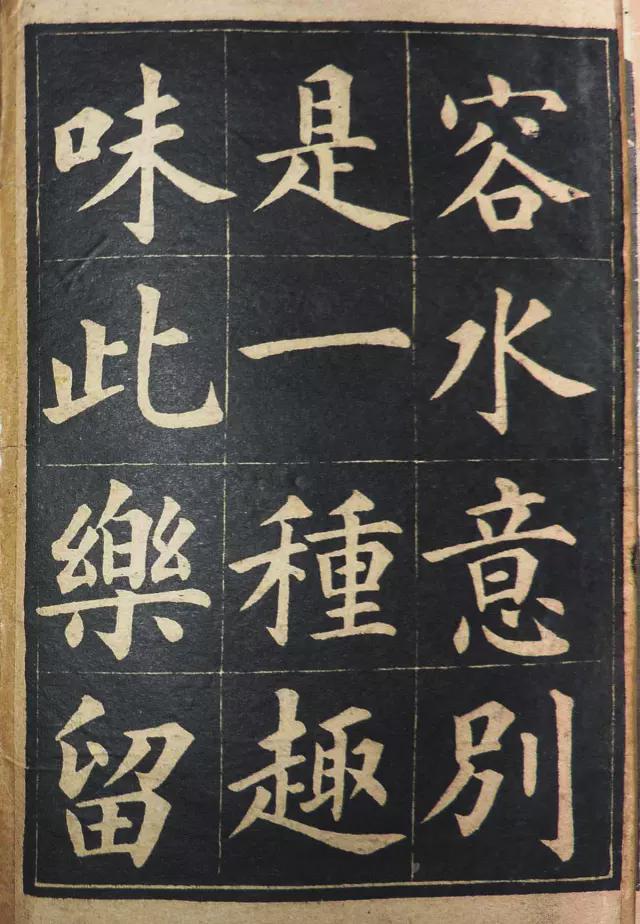 容水意別
是一種趣
味此樂留